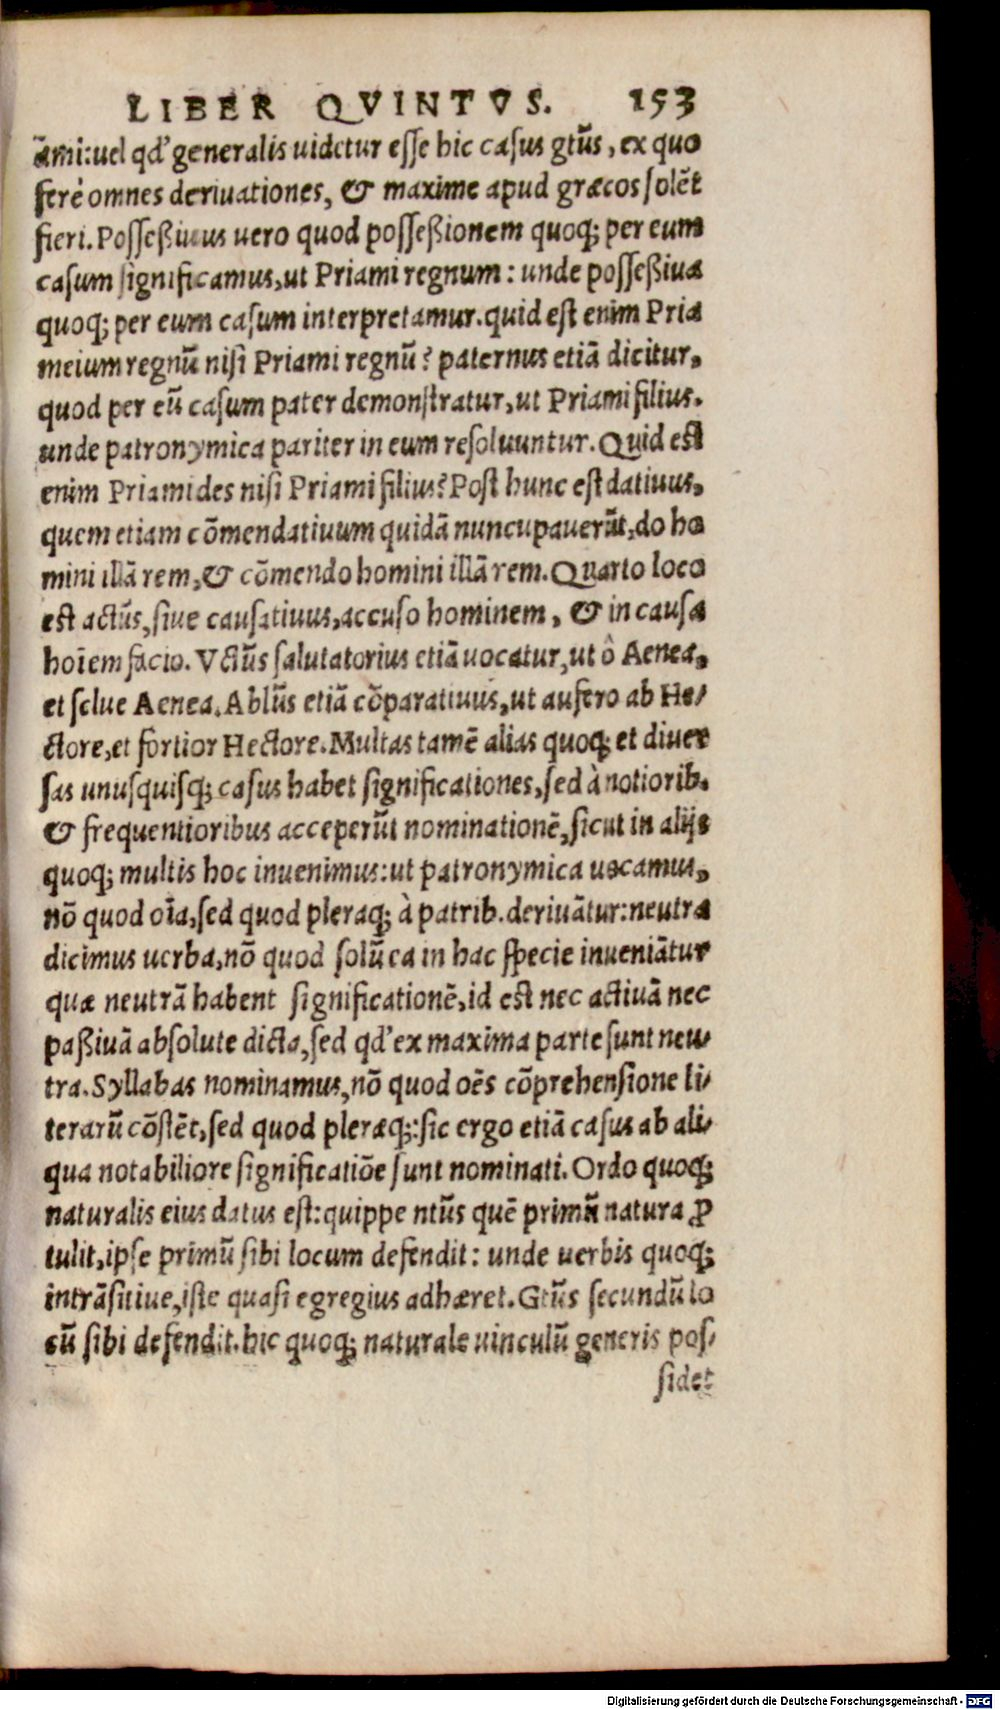 LIBER QVINTVS. 153
ãmi:uel qd' generalis uidetur esse hic casus gtũs, ex quo
ferè omnes deriuationes, & maxime apud græcos solẽt
fieri. Posseßiuus uero quod posseßionem quoq; per eum
casum significamus, ut Priami regnum: unde posseßiua
quoq; per eum casum interpretamur. quid est enim Pria
meium regnũ nisi Priami regnũ? paternus etiã dicitur,
quod per eũ casum pater demonstratur, ut Priami filius.
unde patronymica pariter in eum resoluuntur. Quid est
enim Priamides nisi Priami filius? Post hunc est datiuus,
quem etiam cõmendatiuum quidã nuncupauerũt, do ho
mini illã rem, & cõmendo homini illã rem. Quarto loco
est actũs, siue causatiuus, accuso hominem, & in causa
hoĩem facio. Vctũs salutatorius etiã uocatur, ut ô Aenea,
et selue Aenea. Ablũs etiã cõparatiuus, ut aufero ab He/
ctore, et fortior Hectore. Multas tamẽ alias quoq; et diuer
sas unusquisq; casus habet significationes, sed à notiorib.
& frequentioribus acceperũt nominationẽ, sicut in alijs
quoq; multis hoc inuenimus: ut patronymica uocamus,
nõ quod oĩa, sed quod pleraq; à patrib. deriuãtur: neutra
dicimus uerba, nõ quod solũ ea in hac specie inueniãtur
quæ neutrã habent significationẽ, id est nec actiuã nec
paßiuã absolute dicta, sed qd' ex maxima parte sunt neu/
tra. Syllabas nominamus, nõ quod oẽs cõprehensione li/
terarũ cõstẽt, sed quod pleræq;: sic ergo etiã casus ab ali/
qua notabiliore significatiõe sunt nominati. Ordo quoq;
naturalis eius datus est: quippe ntũs quẽ primũ natura ꝓ
tulit, ipse primũ sibi locum defendit: unde uerbis quoq;
intrãsitiue, iste quasi egregius adhæret. Gtũs secundũ lo
cũ sibi defendit. hic quoq; naturale uinculũ generis pos/
sidet
Digitalisierung gefördert durch die Deutsche Forschungsgemeinschaft - DFG